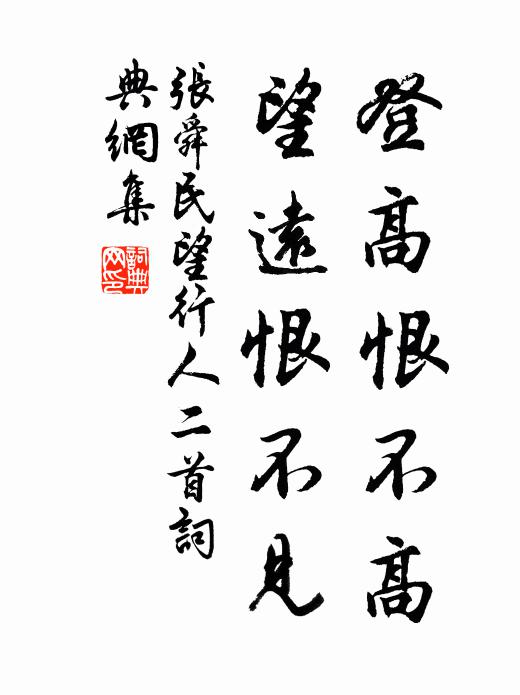 登高恨不高
望遠恨不見
張舜民望行人二首詞
典網集
詞典網印